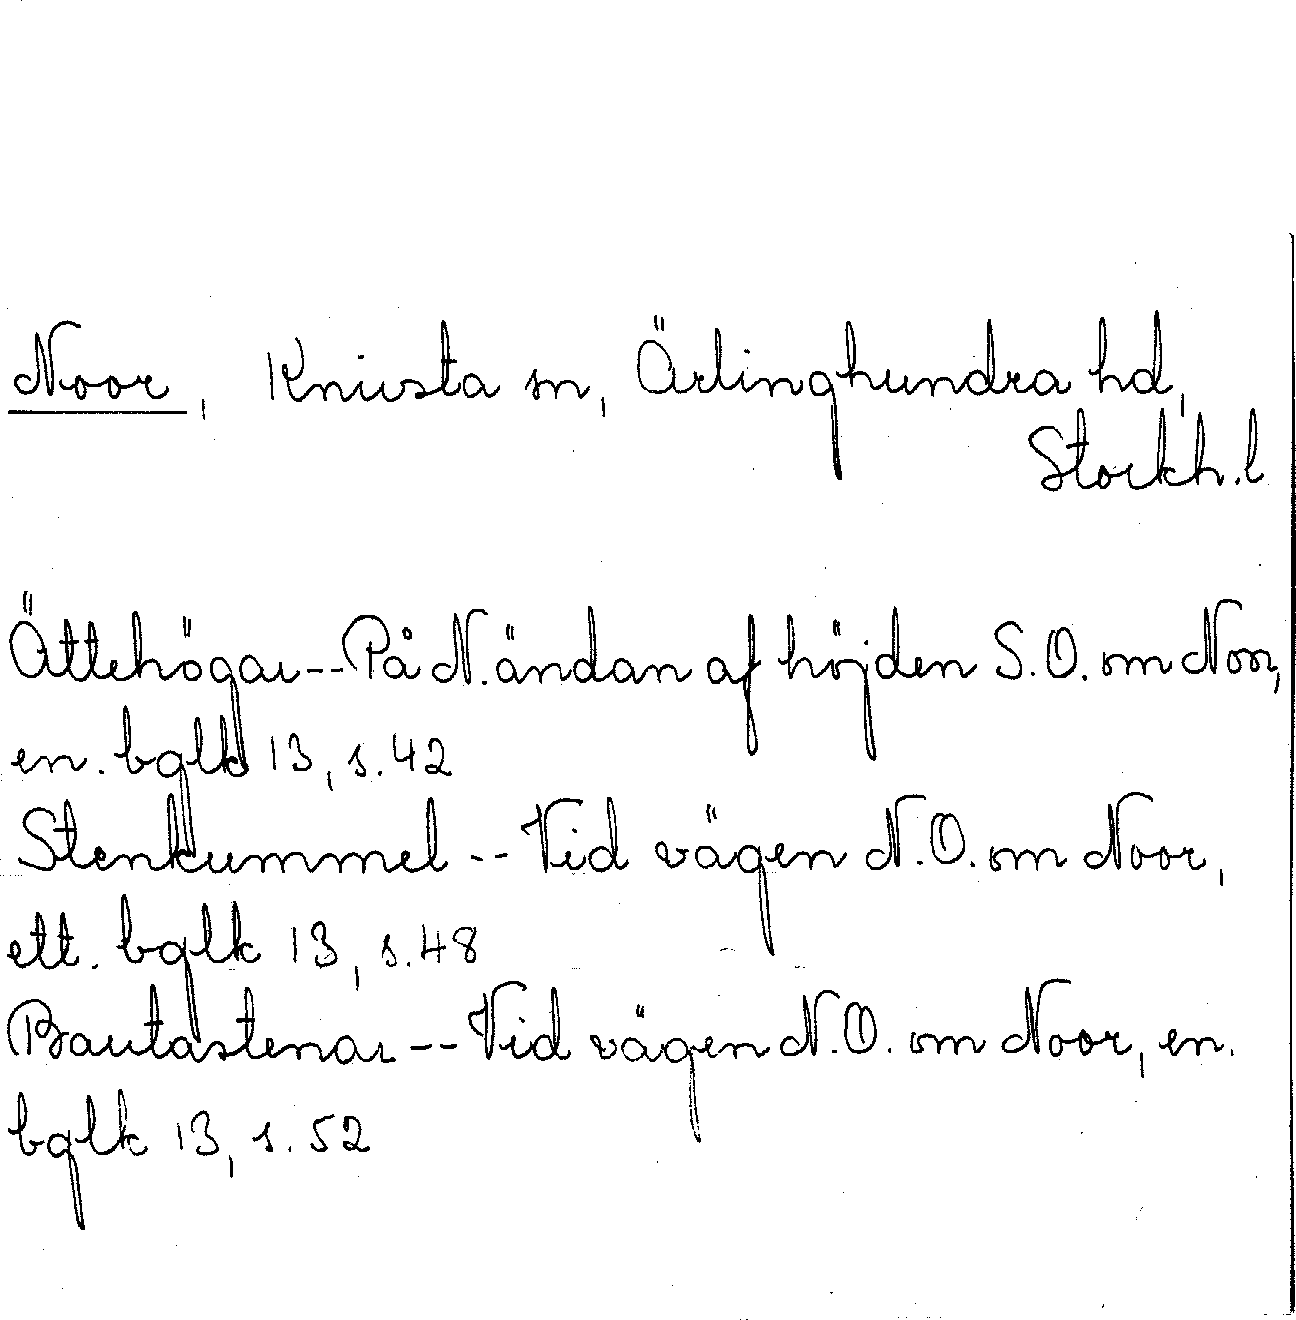 Noor, Knivsta sn, Ärlinghundra hd,
Stockh. l
Ättehögar -- På N. ändan af höjden S.O. om Noor,
en. bglk 13, s. 42
Stenkummel -- Vid vägen N.O. om Noor,
ett. bglk 13, s. 48
Bautastenar -- Vid vägen N.O. om Noor, en.
bglk 13, s. 52